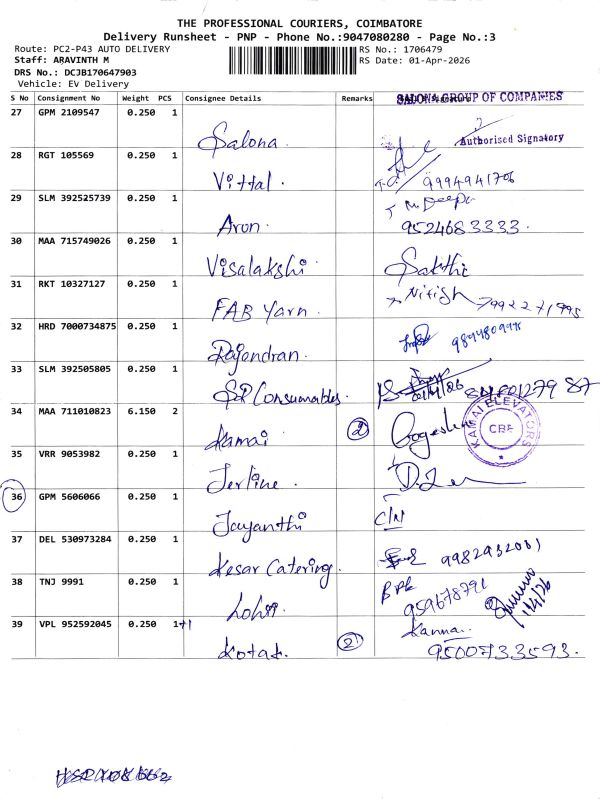 THE PROFESSIONAL COURIERS, COIMBATORE
Delivery Runsheet - PNP - Phone No.:9047080280 - Page No.:3
Route: PC2-P43 AUTO DELIVERY RS No.: 1706479
Staff: ARAVINTH M RS Date: 01-Apr-2026
DRS No.: DCJB170647903
Vehicle: EV Delivery
S No Consignment No Weight PCS Consignee Details Remarks
SALONA GROUP OF COMPANIES
27 GPM 2109547 0.250 1 Salona
Authorised Signatory
28 RGT 105569 0.250 1 Vittal. 9994941706
29 SLM 392525739 0.250 1 Arun. M Deepa
9524683333.
30 MAA 715749026 0.250 1 Visalakshi Sakthi
31 RKT 10327127 0.250 1 FAB Yarn. Nitish 7992271995
32 HRD 7000734875 0.250 1 Rajendran.
33 SLM 392505805 0.250 1 SR Consumables.
34 MAA 711010823 6.150 2 Kamai 2
KAMAI ELEVATORS
CBE
35 VRR 9053982 0.250 1 Jerline.
36 GPM 5606066 0.250 1 Jayanthi C/N
37 DEL 530973284 0.250 1 Kesar Catering. 9982932081
38 TNJ 9991 0.250 1 Lohit. 959678791
1/4/26
39 VPL 952592045 0.250 1+1 Kotak. 2 Kanna
9500733593.